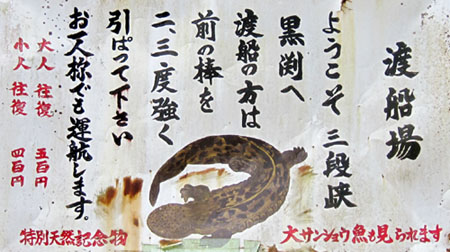 渡船場
ようこそ 三段峡
黒渕へ
渡船の方は
前の棒を
二、三度強く
引ぱって下さい
お一人称でも運航します。
大人 往復 五百円
小人 往復 四百円
特別天然記念物
大サンショウ魚も見られます